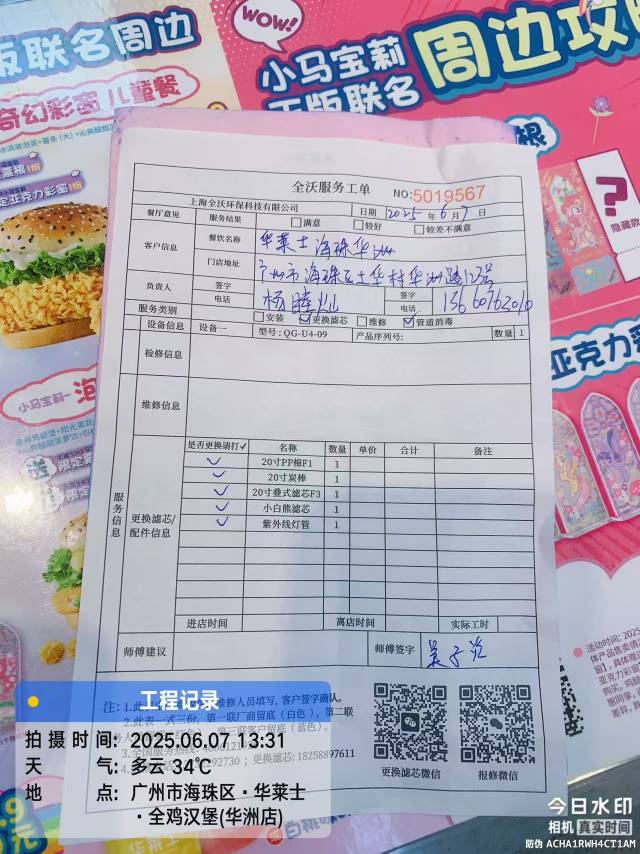 版联名周边
WOW!
小马宝莉
正版联名
周边攻
奇幻彩窗儿童餐
全沃服务工单
NO:5019567
上海全沃环保科技有限公司
日期 2025年6月7日
餐厅意见 服务结果 满意 较好 较差不满意
客户信息 餐饮名称 华莱士海珠华洲
门店地址 广州市海珠区土华村华洲路123号
负责人 签字 签字
电话 电话
服务类别 安装 更换滤芯 维修 管道消毒
设备信息 设备一 型号:QG-U4-09 产品序列号: 数量 1
检修信息
维修信息
服务信息
更换滤芯/配件信息
是否更换请打✓ 名称 数量 单价 合计 备注
✓ 20寸PP棉F1 1
✓ 20寸炭棒 1
✓ 20寸叠式滤芯F3 1
✓ 小白熊滤芯 1
✓ 紫外线灯管 1
进店时间 离店时间 实际工时
师傅建议 师傅签字
维修人员填写,客户签字确认。
2.此表一式三份,第一联厂商留底(白色),第二联
第三联客户留底(蓝色)。
更换滤芯:18258897611
更换滤芯微信
报修微信
小马宝莉
亚克力彩
隐藏款
工程记录
拍摄时间:2025.06.07 13:31
天气:多云 34℃
地点:广州市海珠区·华莱士
·全鸡汉堡(华洲店)
今日水印
相机 真实时间
防伪 ACHA1RWH4CT1AM